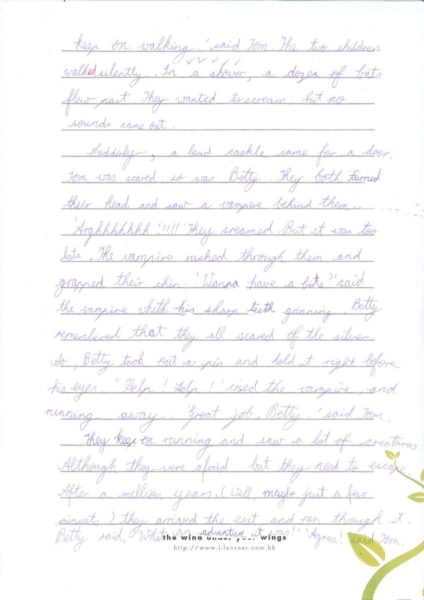 keep on walking.' said Tom. The two children
walked silently. In a shower, a dozen of bats
flew past. They wanted to scream but no
sounds came out.
Suddenly, a loud cackle came for a door.
Tom was scared so was Betty. They both turned
their head and saw a vampire behind them.
'Arghhhhhhh!!!!!' They sreamed. But it was too
late. The vampire rushed through them and
grapped their chin. 'Wanna have a bite?' said
the vampire whith his sharp teeth grinning. Betty
remembered that they all scared of the silver
so, Betty took out a pin and hold it right before
his eyes. 'Help! Help!' cried the vampire, and
running away. 'Great job Betty.' said Tom.
They keep on running and saw a lot of creatures.
Although they were afraid but they need to escape.
After a million years, (Well, maybe just a few
) they arrived the exit and ran through it.
Betty said, 'What an adventure it was!' 'Agree!' said Tom.
the wind under your wings
http://www.i-learner.com.hk